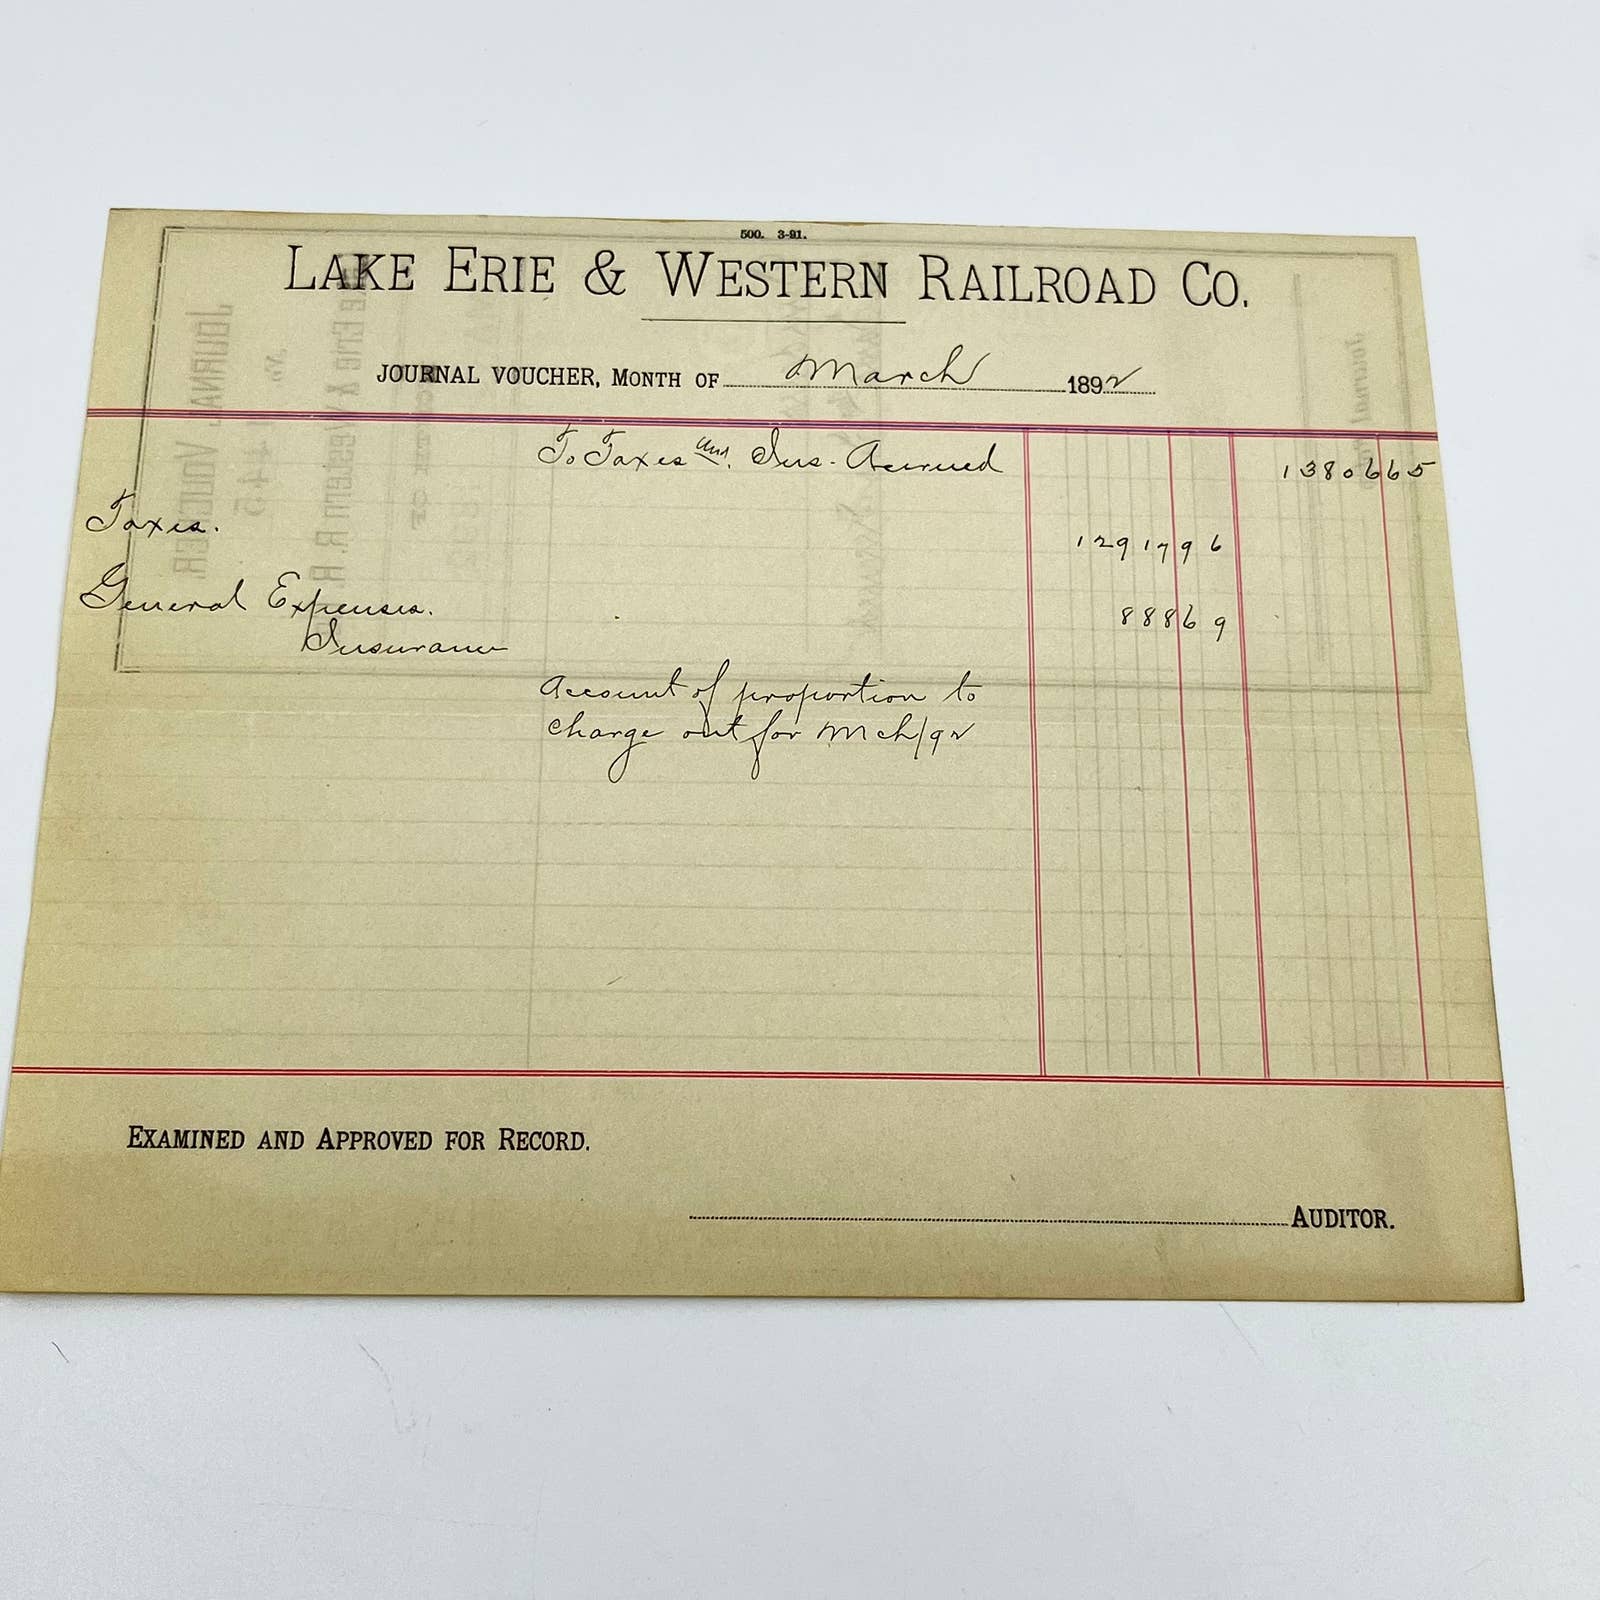 500. 3-91.
LAKE ERIE & WESTERN RAILROAD CO.
JOURNAL VOUCHER, MONTH OF March 1892
To Taxes and Ins. Accrued 13806 65
Taxes. 12917 96
General Expenses. 888 69
Insurance
Account of proportion to
charge out for Mch/92
EXAMINED AND APPROVED FOR RECORD.
AUDITOR.